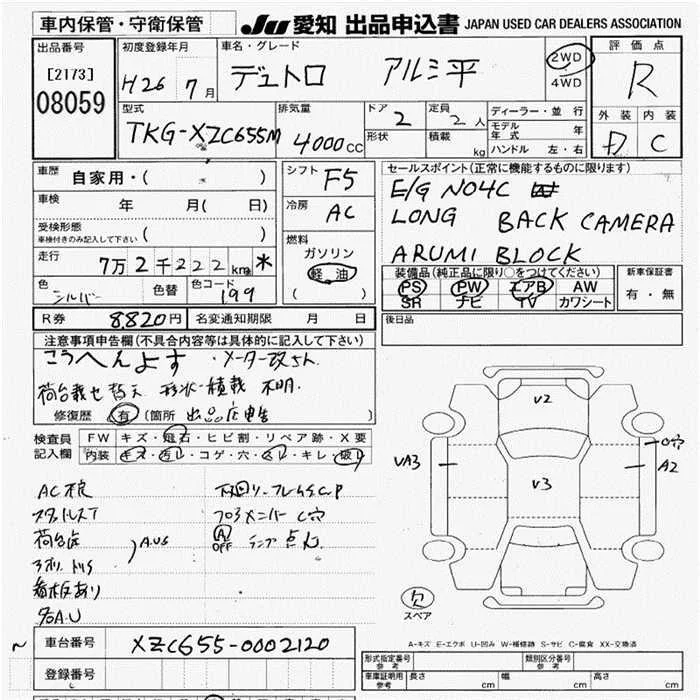 車内保管・守衛保管
JU 愛知 出品申込書 JAPAN USED CAR DEALERS ASSOCIATION
出品番号
[2173]
08059
初度登録年月
H26 7月
車名・グレード
デュトロ アルミ平
2WD
4WD
評価点
R
外装 内装
C
型式
TKG-XZC655M
排気量
4000CC
ドア
2
形状
定員
2人
積載
kg
ディーラー・並行
モデル年式 年
ハンドル 左・右
車歴
自家用・( )
車検
年 月( 日)
受検形態
車検付きのみ記入して下さい ( )
走行
7万2千222km *
色
シルバー
色替
色コード
199
シフト
F5
冷房
AC
燃料
ガソリン
軽油
( )
セールスポイント(正常に機能するものに限ります)
E/G N04C
LONG BACK CAMERA
ARUMI BLOCK
装備品(純正品に限り○をつけてください)
PS PW エアB AW
SR ナビ TV カワシート
新車保証書
有・無
R券 8,820円 名変通知期限 月 日
後日品
注意事項申告欄(不具合内容等は具体的に記入して下さい)
こうへんよす・メーター改ざん
荷台載せ替え 形状・積載 不明
修復歴 有 (箇所 出品店申告 )
検査員
記入欄
FW キズ・飛石・ヒビ割・リペア跡・X要
内装 キズ・汚レ・コゲ・穴・スレ・キレ・破レ
V2
V3
VA3
C穴
A2
AC
A.US
看板あり
下回り
C穴
OFF ランプ点灯
欠
スペア
A-キズ E-エクボ U-凹み W-補修跡 S-サビ C-腐食 XX-交換済
車台番号 XZC655-0002120
登録番号
形式指定番号
参考
類別区分番号
参考
車庫証明用
参考
長さ cm 幅 cm 高さ cm